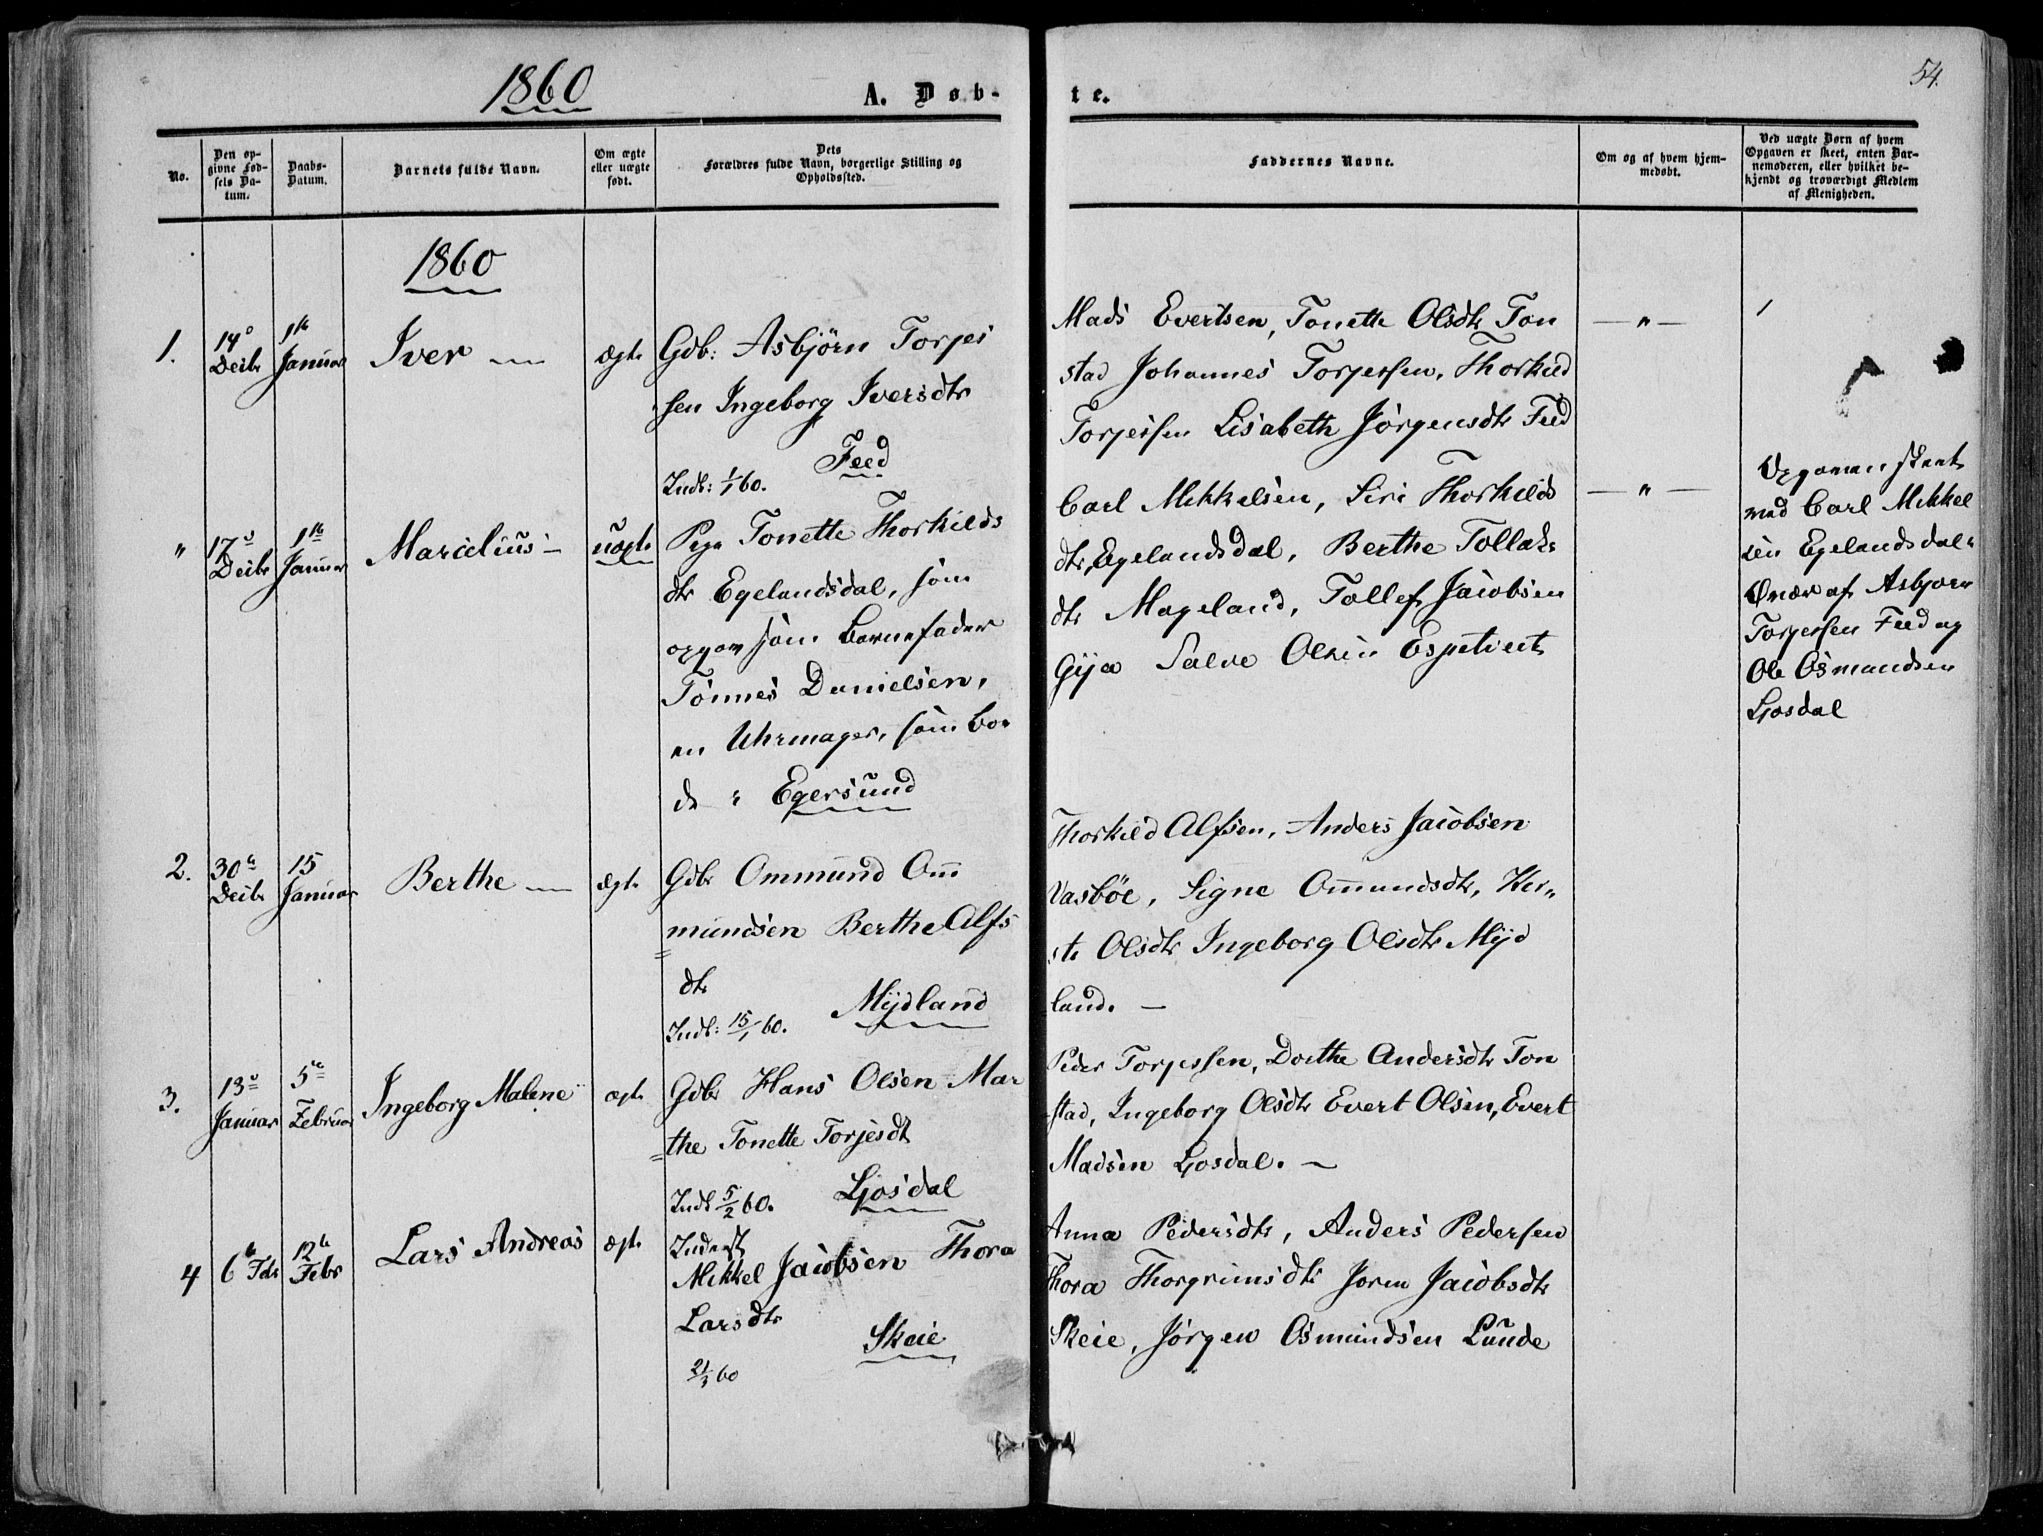 1860
A. Døb-
te.
54.
No.
Den op-
givne Fød-
sels Da-
tum.
Daabs-
Datum.
Barnets fulde Navn.
Om ægte
eller uægte
født.
Dets
Forældres fulde Navn, borgerlige Stilling og
Opholdssted.
Faddernes Navne.
Om og af hvem hjem-
medøbt.
Ved uægte Børn af hvem
Opgaven er skeet, enten Bar-
nemoderen, eller hvilket be-
kjendt og troværdigt Medlem
af Menigheden.
1860
1.
14
Decbr
1ste
Januar
Iver
ægte
Gdb: Asbjørn Torjes
sen Ingeborg Iversdtr
Feed
Indb: 1/1 60.
Mads Evertsen, Tonette Olsdtr Ton
stad Johannes Torjessen, Thorkild
Torjessen Lisabeth Jörgensdtr Feed
— " —
"
17
Decbr
1ste
Januar
Marcelius
uægte
Pige Tonette Thorkilds
dtr Egelandsdal, som
opgav som Barnefader
Tønnes Danielsen,
en Uhrmager, som bo-
de i Egersund
Carl Mikkelsen, Siri Thorkilds
dtr Egelandsdal, Berthe Tollaks
dtr Mageland, Tollef Jacobsen
Gya Salve Olsen Espetveit
— " —
Opgaven skeet
ved Carl Mikkel
sen Egelandsdal.
Onær af Asbjørn
Torjessen Feed og
Ole Osmundsen
Ljosdal
2.
30
Decbr
15
Januar
Berthe
ægte
Gdb Ommund Om
mundsen Berthe Alfs
dtr
Mydland
Indb: 15/1 60.
Thorkild Alfsen, Anders Jacobsen
Vasbøe, Signe Ommundsdtr, Kir-
ste Olsdtr Ingeborg Olsdtr Myd
land. —
3.
13
Januar
5
Februar
Ingeborg Malene
ægte
Gdb Hans Olsen Mar
the Tonette Torjesdt
Ljosdal
Indb 5/2 60.
Peder Torjessen, Dorthe Andersdtr Ton
stad, Ingeborg Olsdtr Evert Olsen, Evert
Madsen Ljosdal. —
4
6 Febr
12
Febr
Lars Andreas
ægte
Inderst
Mikkel Jacobsen Thora
Larsdtr
Skeie
21/3 60
Anna Pedersdtr, Anders Pedersen
Thora Thorgrimsdtr Joren Jacobsdtr
Skeie, Jörgen Osmundsen Lunde